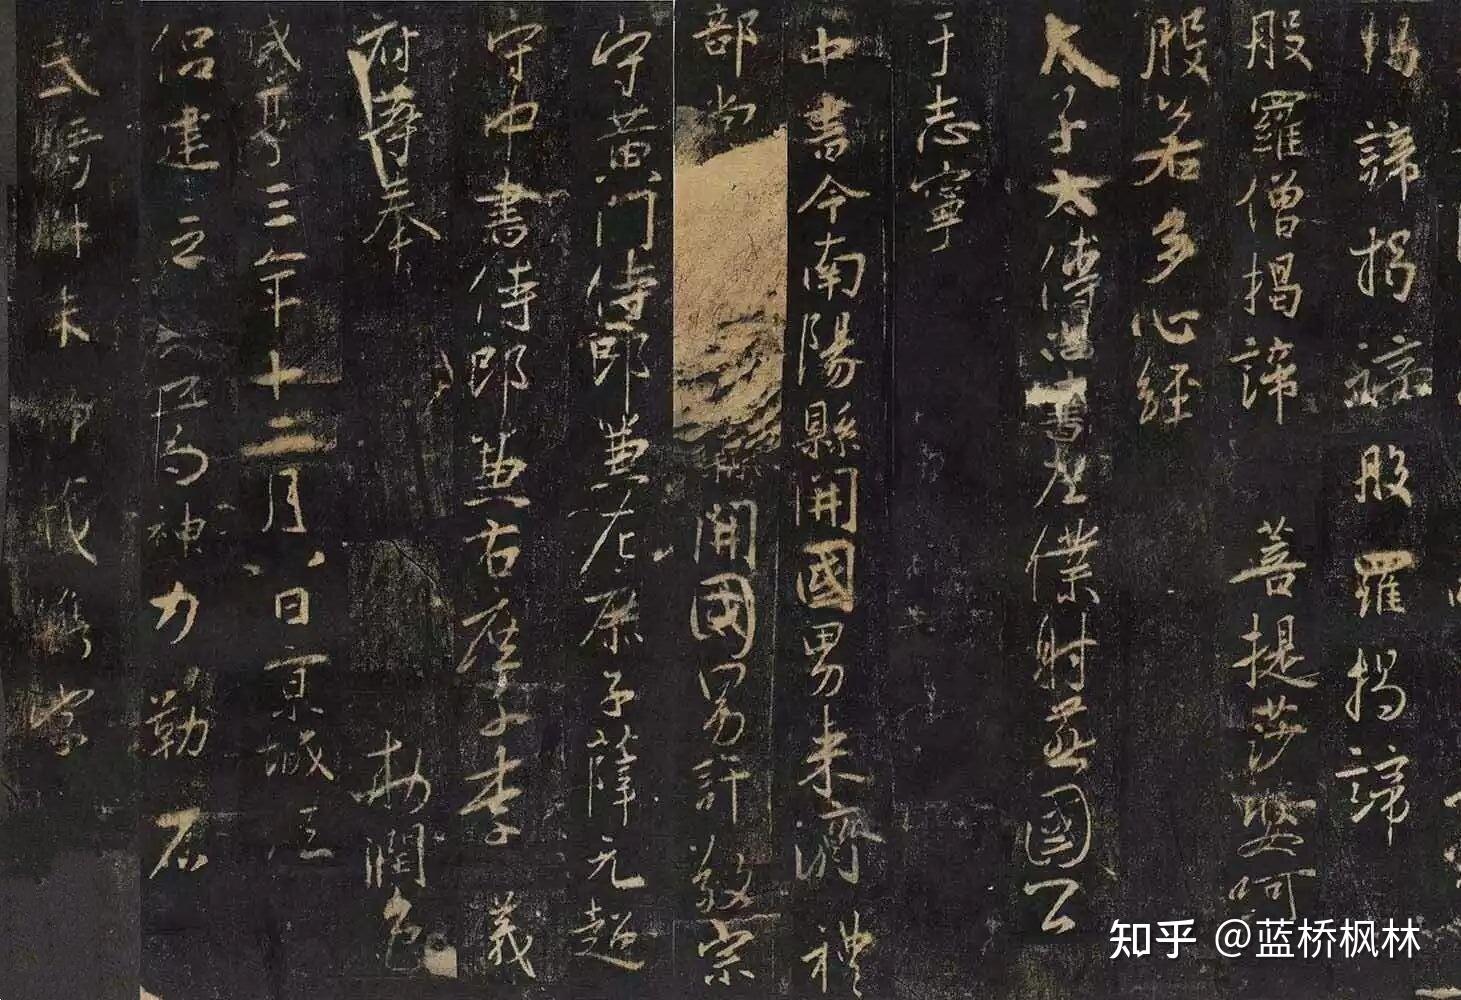 揭諦揭諦般羅揭諦
般羅僧揭諦 菩提莎婆呵
般若多心經
太子太傅尚書左僕射燕國公
于志寧
中書令南陽縣開國男来濟 禮
部尚縣開國男許敬宗
守黃門侍郎兼左庶子薛元超
守中書侍郎兼右庶子李 義
府等奉 勅潤色
咸亨三年十二月八日京城法
侶建立 文 神力勒石
武騎尉朱
知乎 @蓝桥枫林